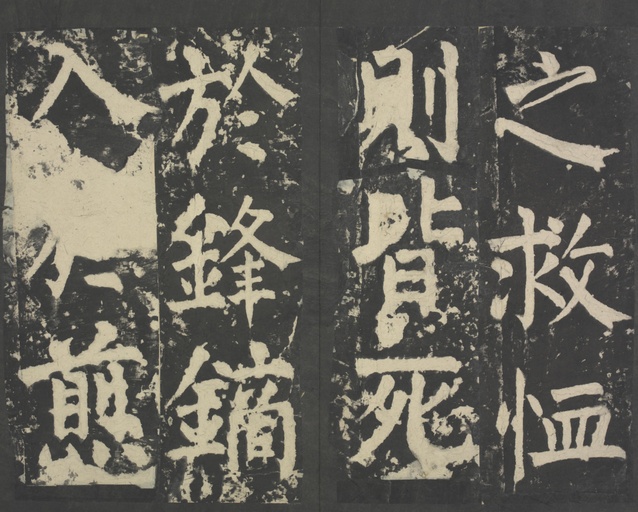 之救恤
則皆死
於鋒鏑
入煎